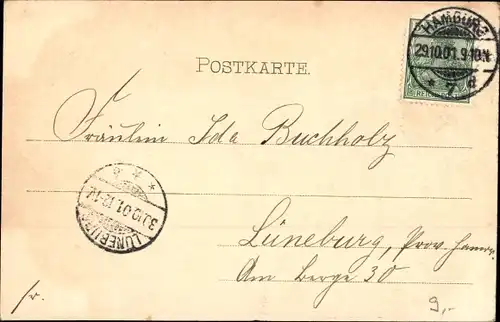 HAMBURG
29.10.01.9-10N
* 7 d
REICHSPOST
POSTKARTE.
Fräulein Ida Buchholz
LÜNEBURG
30.10.01.12-1V
Lüneburg, Prov. Hannov.
Am Berge 30
fr.
9,-